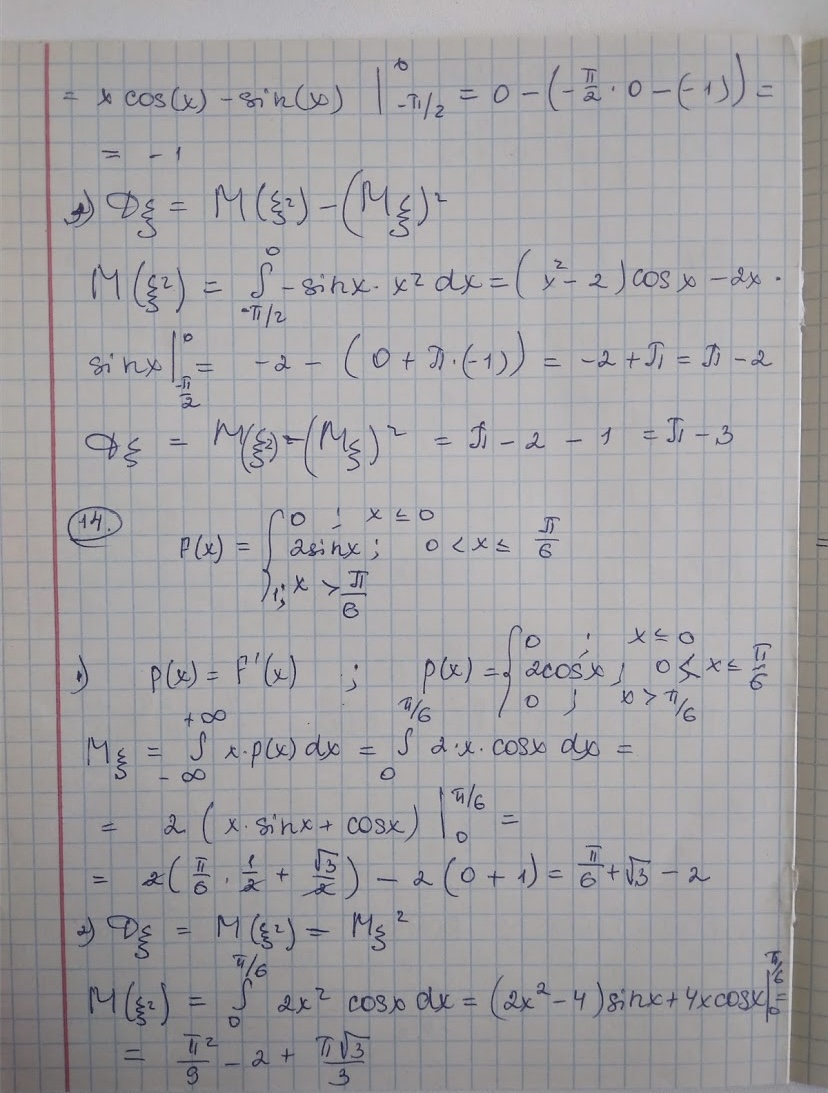 = x cos(x) - sin(x) |₋π/2⁰ = 0 - (-π/2 · 0 - (-1)) =
= -1
2) Dξ = M(ξ²) - (Mξ)²
M(ξ²) = ∫₋π/2⁰ -sinx · x² dx = (x² - 2)cosx - 2x ·
sinx |₋π/2⁰ = -2 - (0 + π·(-1)) = -2 + π = π - 2
Dξ = M(ξ²) - (Mξ)² = π - 2 - 1 = π - 3
14. F(x) = { 0 ; x ≤ 0
2sinx ; 0 < x ≤ π/6
1; x > π/6
1) p(x) = F'(x) ; p(x) = { 0 ; x ≤ 0
2cosx ; 0 < x ≤ π/6
0 ; x > π/6
Mξ = ∫₋∞⁺∞ x·p(x) dx = ∫₀π/6 2·x·cosx dx =
= 2 (x·sinx + cosx) |₀π/6 =
= 2(π/6 · 1/2 + √3/2) - 2(0 + 1) = π/6 + √3 - 2
2) Dξ = M(ξ²) - Mξ²
M(ξ²) = ∫₀π/6 2x² cosx dx = (2x² - 4)sinx + 4x cosx |₀π/6 =
= π²/9 - 2 + π√3/3